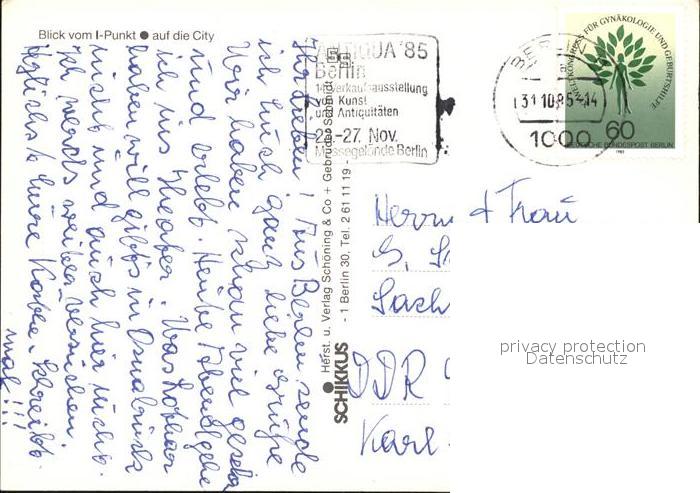 Blick vom I-Punkt ● auf die City
ANTIQUA '85
Berlin
14. Verkaufsausstellung
von Kunst
und Antiquitäten
23.-27. Nov.
Messegelände Berlin
BERLIN
31.10.85-14
1000
WELTKONGRESS FÜR GYNÄKOLOGIE UND GEBURTSHILFE
60
DEUTSCHE BUNDESPOST BERLIN
1985
Ihr Lieben! Aus Berlin sende
ich Euch ganz liebe Grüße
Wir haben schon viel gesehn
und erlebt. Heute Abend gehe
ich ins Theater. Was Lothar
haben will gibts in Osnabrück
nicht und auch hier nicht.
Ich werds weiter versuchen.
Eure Karten. Schreibt
mal!!!
SCHIKKUS
Herst. u. Verlag Schöning & Co + Gebrüder Schmidt
- 1 Berlin 30, Tel. 2 61 11 19 -
Herrn & Frau
G.
Sach
DDR
Karl-
privacy protection
Datenschutz